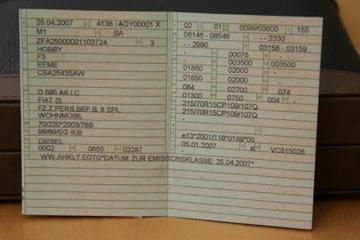 25.04.2007 4136 AGY00001 X
M1 SA
ZFA25000001103724 3
HOBBY
F
EEME
CSA25435AW
D 595 AK LC
FIAT (I)
FZ.Z.PERS.BEF.B. 8 SPL.
WOHNMOBIL
70/220*2003/76B
98/69/EG III;B
DIESEL
0002 0655 02287
WW.AHKLT.EGTG*DATUM ZUR EMISSIONSKLASSE: 25.04.2007*
02 01 0096/03600 155
06146 - 06546 -- 2330
-- 2990 - 03158 -03159
- 00075 -
- 003500 003500
01850 02000 - -
01850 02000 - -
064 02700 074
01300 0750 004 -
215/70R15CP109/107Q
215/70R15CP109/107Q
-
e13*2001/116*0199*00
05.01.2007 K VC815026